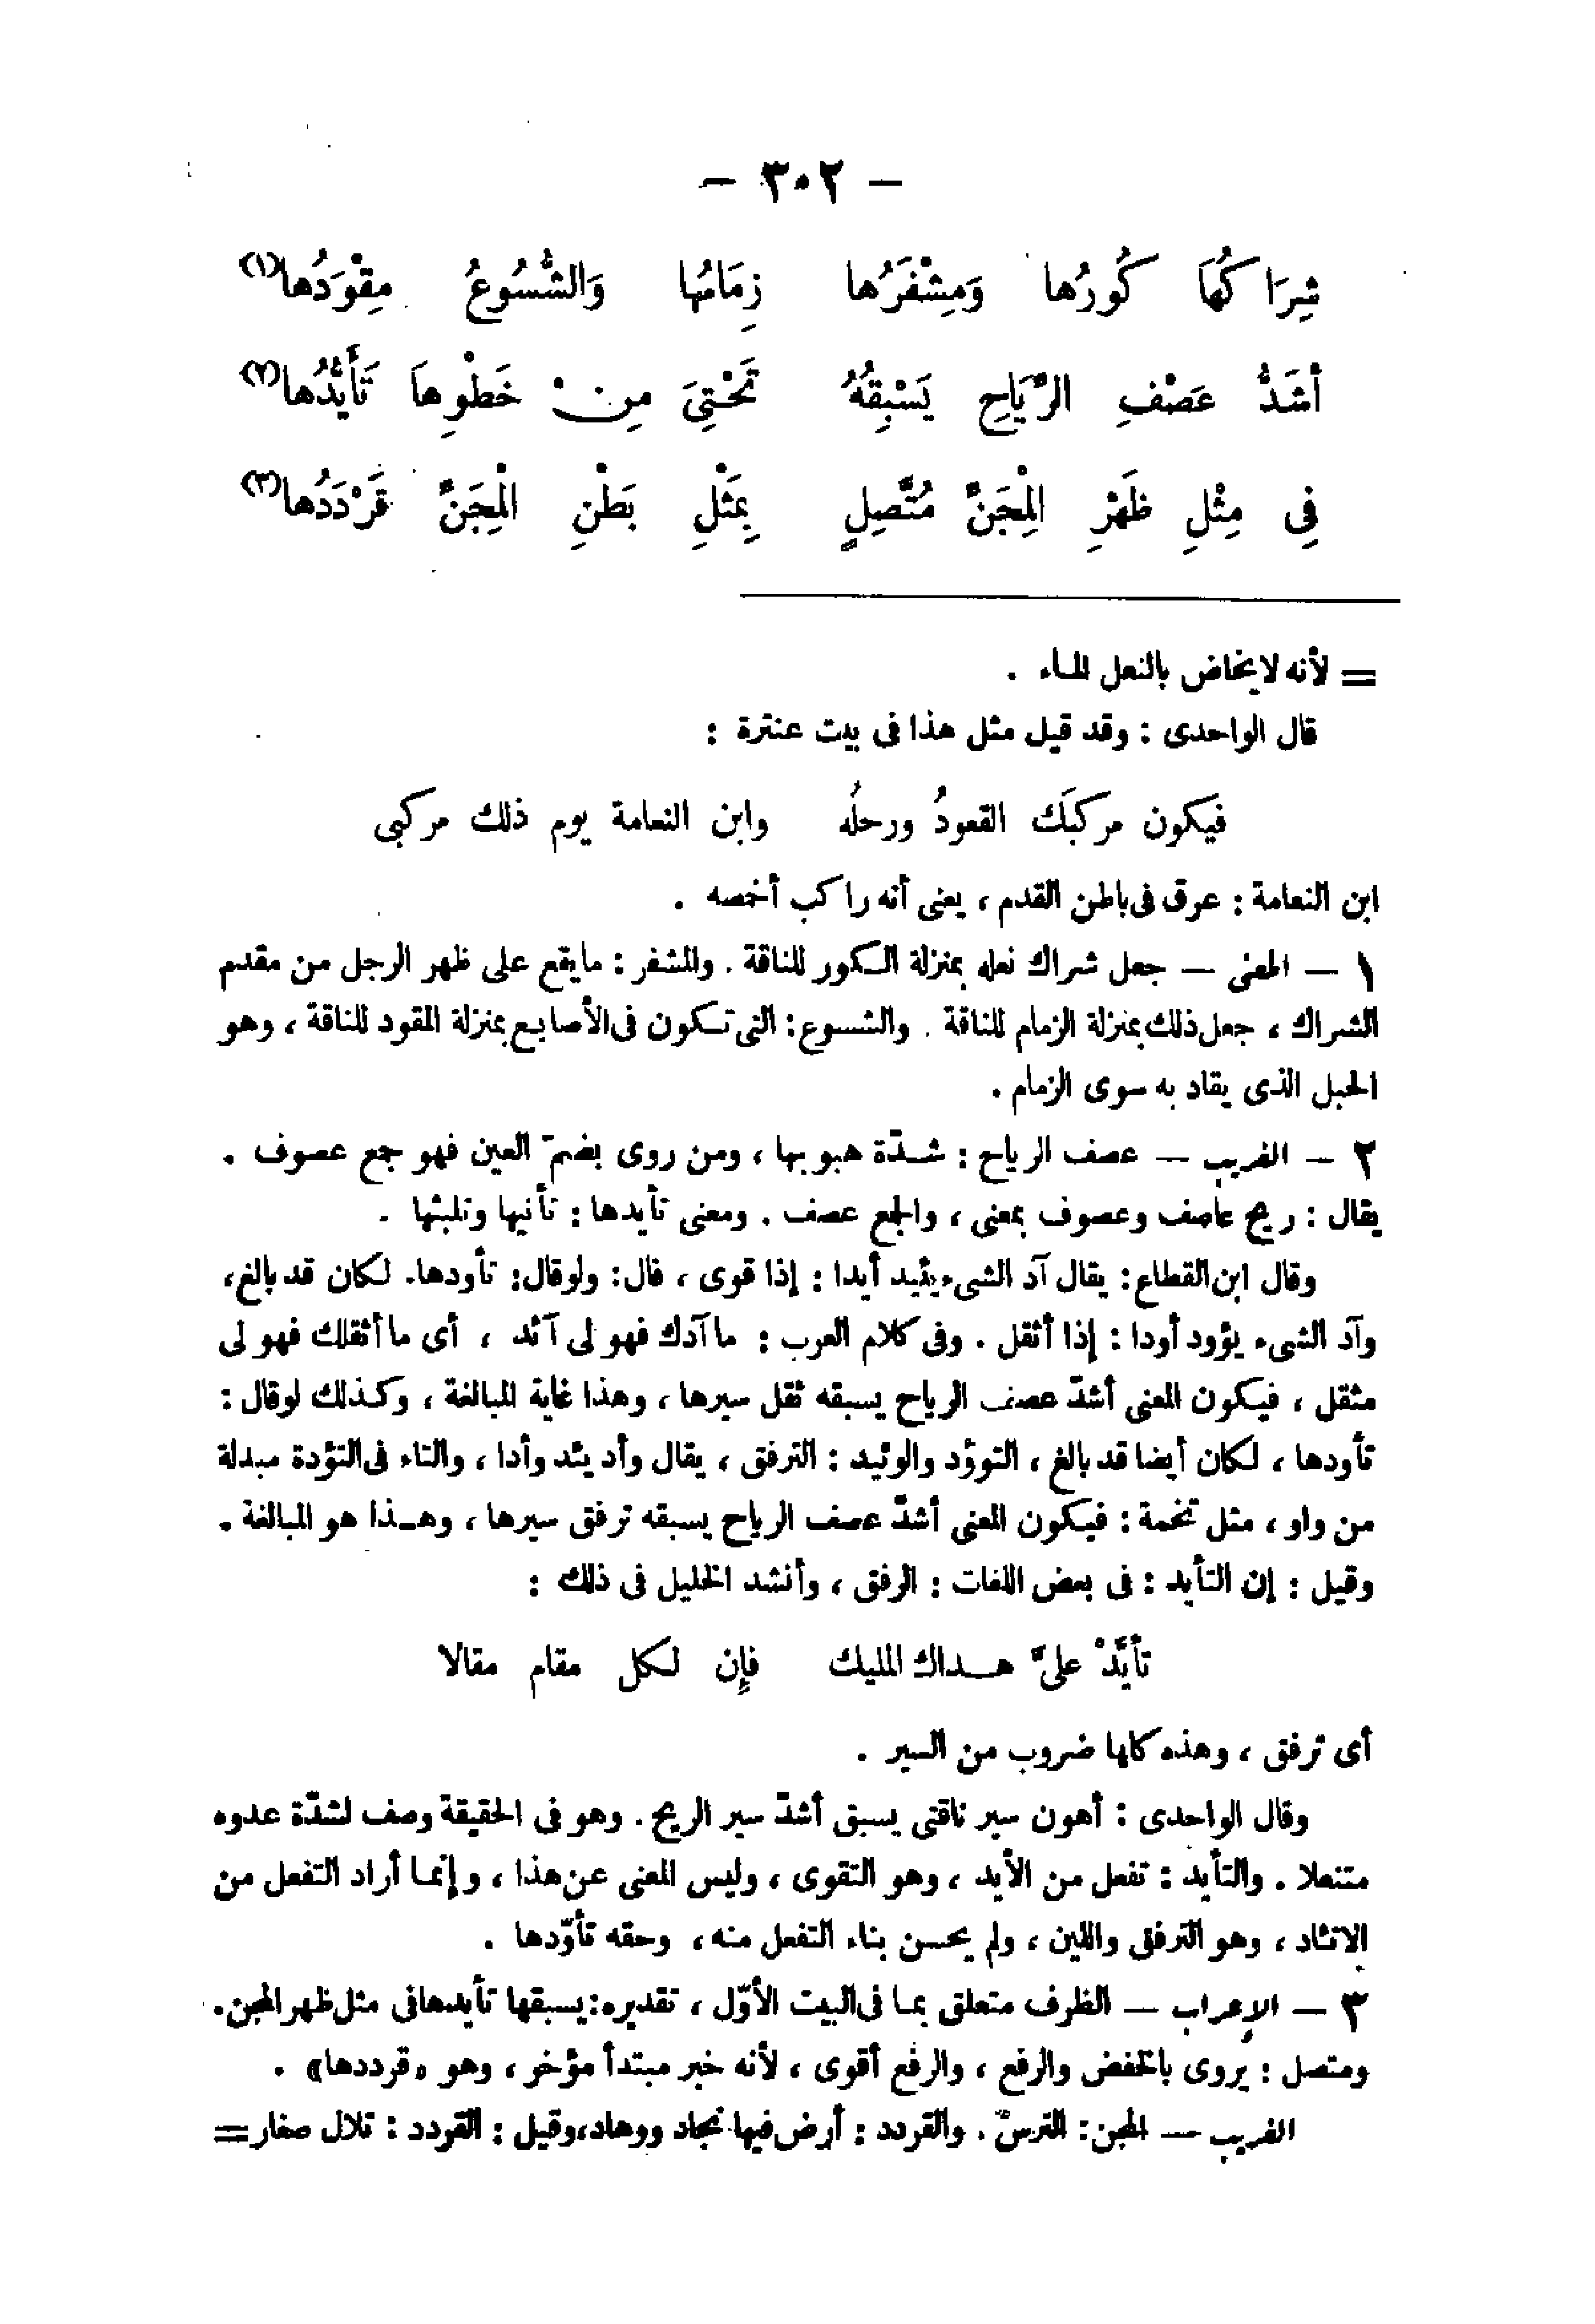 — ٣٠٢ —
شِرَاكُهَا كُورُها وَمِشْفَرُها زِمَامُها وَالشُّسُوعُ مِقْوَدُها(١)
أشَدُّ عَصْفِ الرِّيَاحِ يَسْبِقُهُ تَحْتِىَ مِنْ خَطْوِهاَ تَأَيُّدُها(٢)
فِى مِثْلِ ظَهْرِ الْمِجَنِّ مُتَّصِلٍ بِمَثْلِ بَطْنِ الْمِجَنِّ قَرْدَدُها(٣)
= لأنه لايخاض بالنعل الماء .
قال الواحدى : وقد قيل مثل هذا فى بيت عنترة :
فيكون مركبَك القعودُ ورحلُه وابن النعامة يوم ذلك مركبى
ابن النعامة : عرق فى باطن القدم ، يعنى أنه راكب أخمصه .
١ — المعنى — جعل شراك نعله بمنزلة الكور للناقة . والمشفر : مايقع على ظهر الرجل من مقدم
الشراك ، جعل ذلك بمنزلة الزمام للناقة . والشسوع : التى تكون فى الأصابع بمنزلة المقود للناقة ، وهو
الحبل الذى يقاد به سوى الزمام .
٢ — الغريب — عصف الرياح : شدّة هبوبها ، ومن روى بضمّ العين فهو جمع عصوف .
يقال : ريح عاصف وعصوف بمعنى ، والجمع عصف . ومعنى تأيدها : تأنيها وتلبثها .
وقال ابن القطاع : يقال آد الشىء يئيد أيدا : إذا قوى ، قال : ولوقال : تأودها . لكان قد بالغ ،
وآد الشىء يؤود أودا : إذا أثقل . وفى كلام العرب : ما آدك فهو لى آئد ، أى ما أثقلك فهو لى
مثقل ، فيكون المعنى أشدّ عصف الرياح يسبقه ثقل سيرها ، وهذا غاية المبالغة ، وكذلك لوقال :
تأودها ، لكان أيضا قد بالغ ، التوؤد والوئيد : الترفق ، يقال وأد يئد وأدا ، والتاء فى التؤدة مبدلة
من واو ، مثل تخمة : فيكون المعنى أشدّ عصف الرياح يسبقه ترفق سيرها ، وهذا هو المبالغة .
وقيل : إن التأيد : فى بعض اللغات : الرفق ، وأنشد الخليل فى ذلك :
تأيَّدْ علىَّ هداك المليك فإن لكل مقام مقالا
أى ترفق ، وهذه كلها ضروب من السير .
وقال الواحدى : أهون سير ناقتى يسبق أشدّ سير الريح . وهو فى الحقيقة وصف لشدّة عدوه
متنعلا . والتأيد : تفعل من الأيد ، وهو التقوى ، وليس المعنى عن هذا ، وإنما أراد التفعل من
الاتئاد ، وهو الترفق واللين ، ولم يحسن بناء التفعل منه ، وحقه تأوّدها .
٣ — الإعراب — الظرف متعلق بما فى البيت الأوّل ، تقديره : يسبقها تأيدها فى مثل ظهر المجن .
ومتصل : يروى بالخفض والرفع ، والرفع أقوى ، لأنه خبر مبتدأ مؤخر ، وهو «قرددها» .
الغريب — المجن : الترس . والقردد : أرض فيها نجاد ووهاد ، وقيل : القردد : تلال صغار =